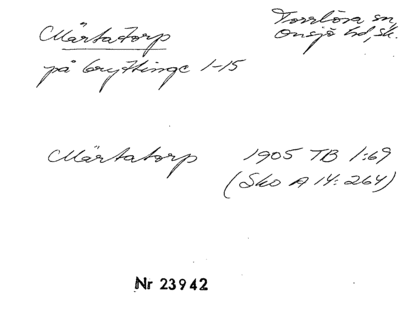 Märtatorp
Torrlösa sn,
Onsjö hd, Sk.
på Gryttinge 1-15
Märtatorp 1905 TB 1:69
(Sko A 14: 264)
Nr 23942